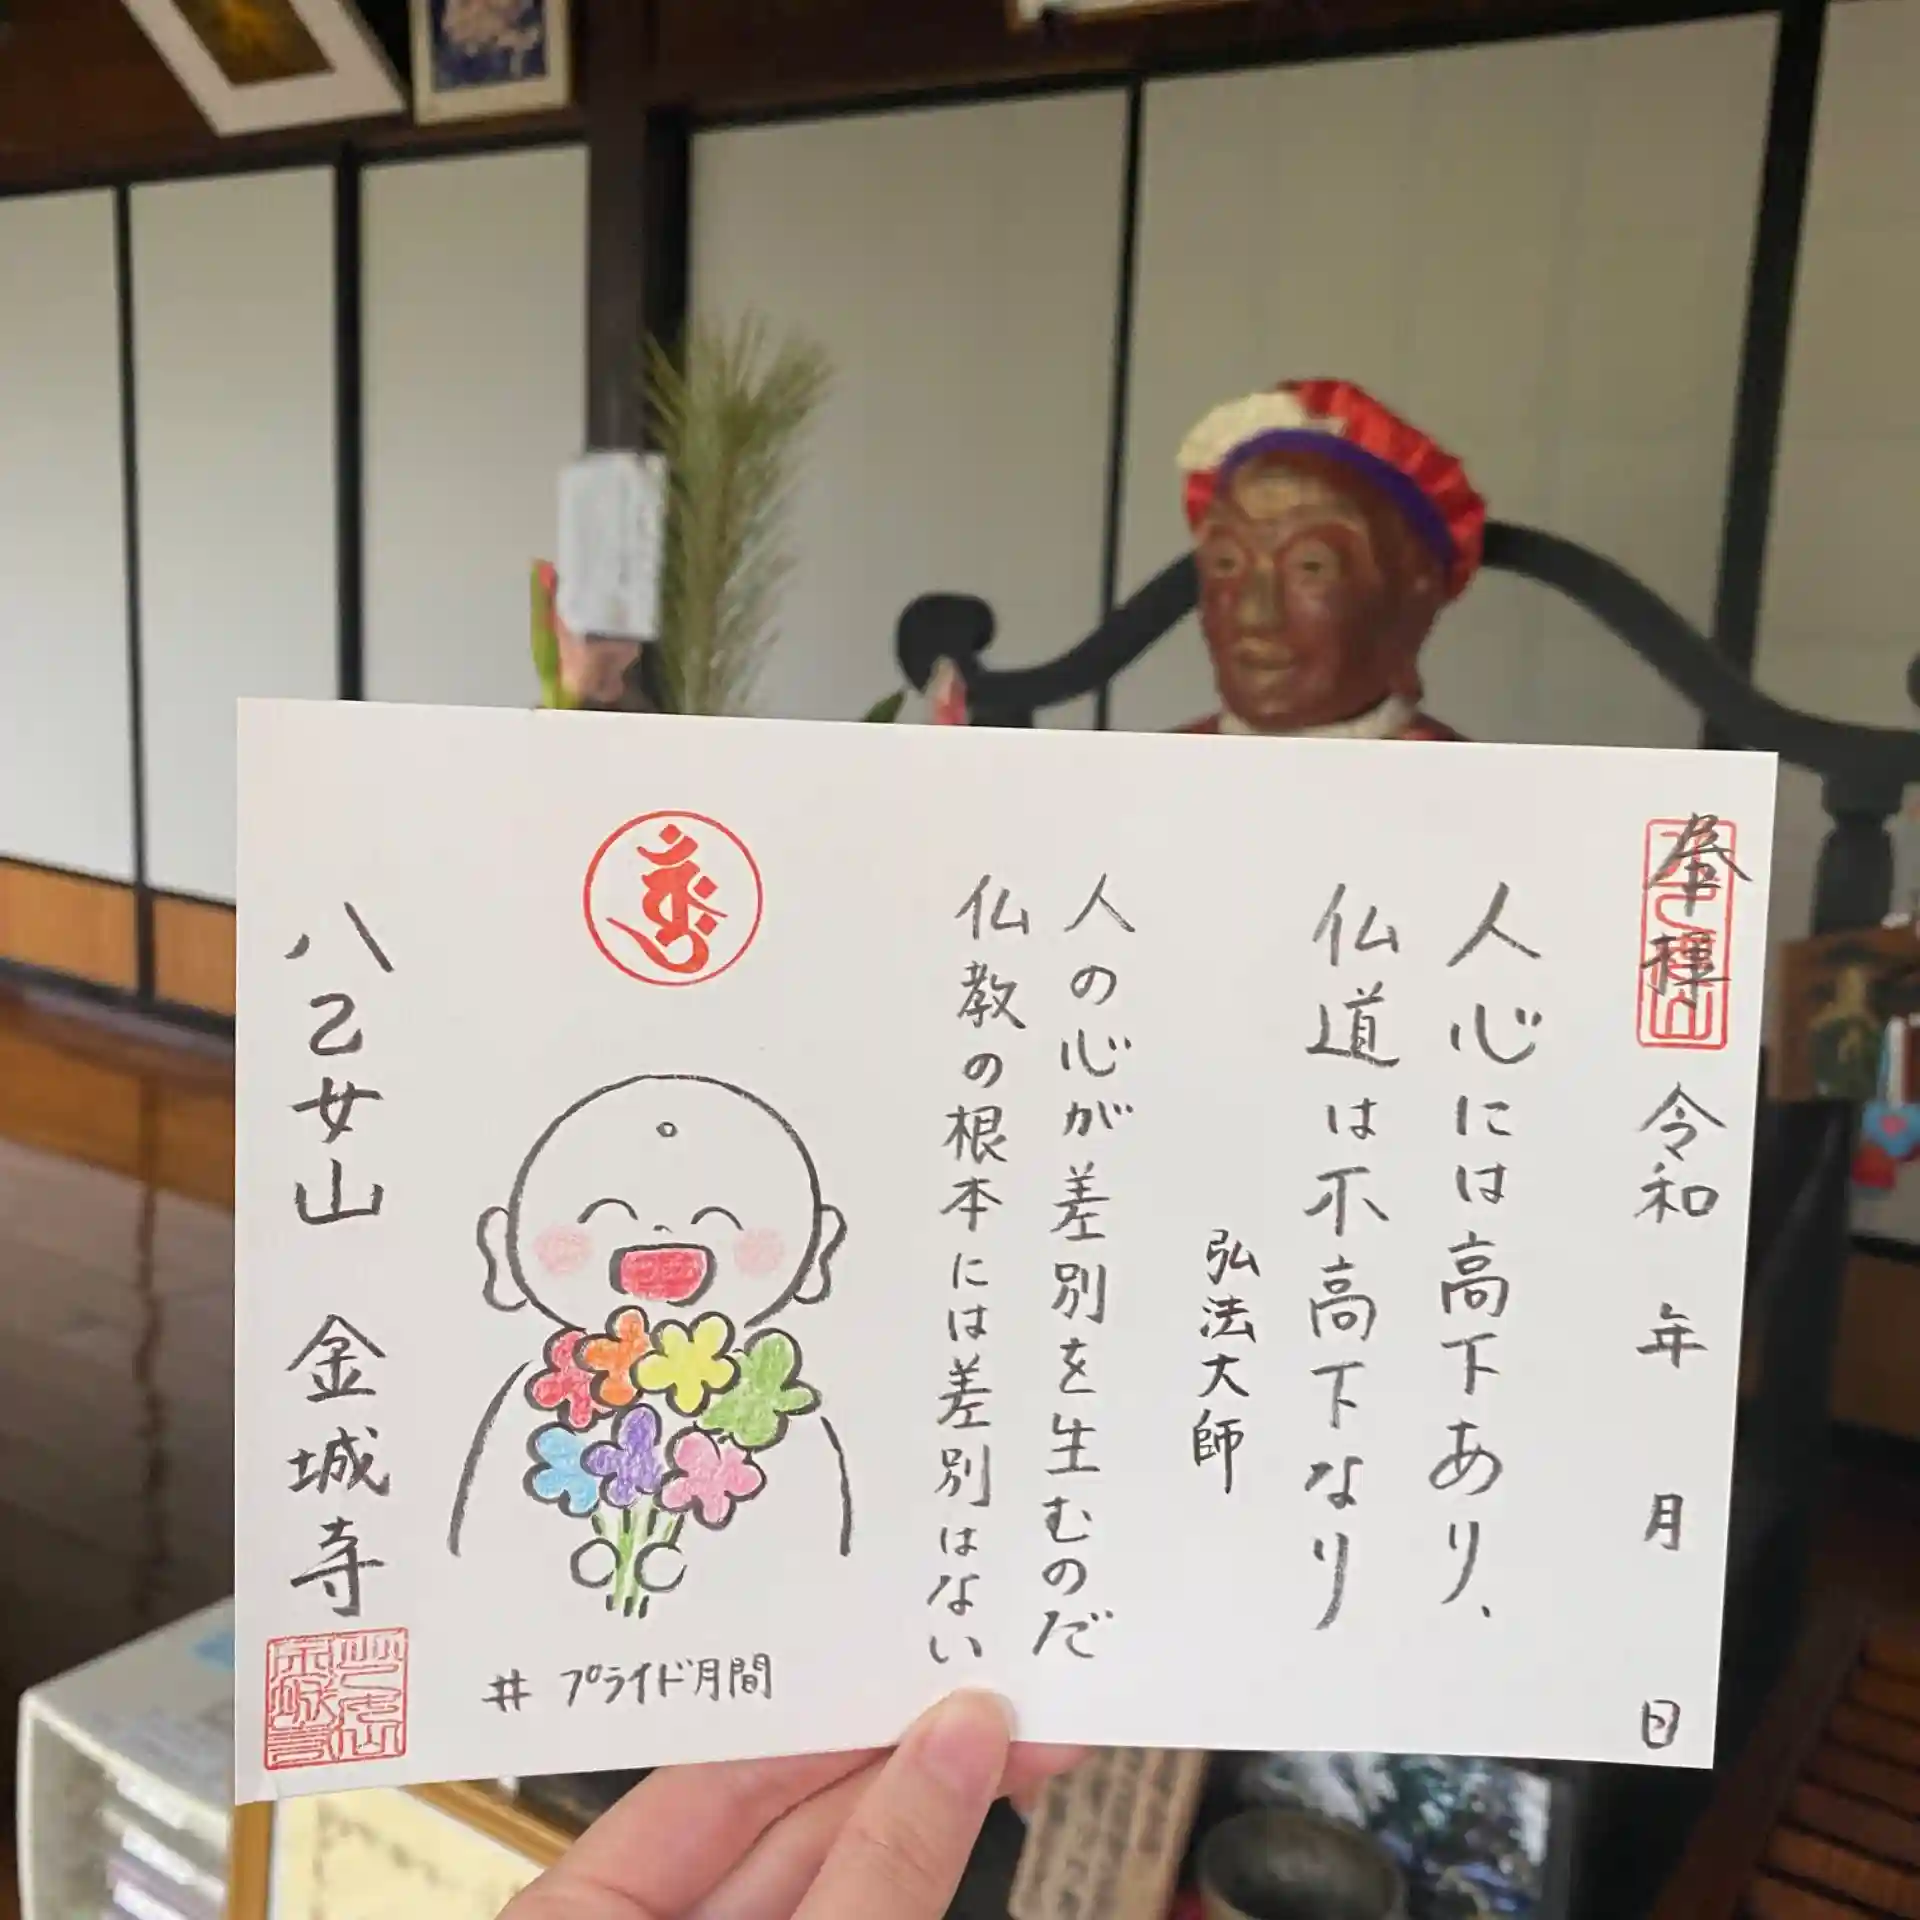 奉拝 令和 年 月 日
人心には高下あり、
仏道は不高下なり
弘法大師
人の心が差別を生むのだ
仏教の根本には差別はない
# プライド月間
八乙女山 金城寺